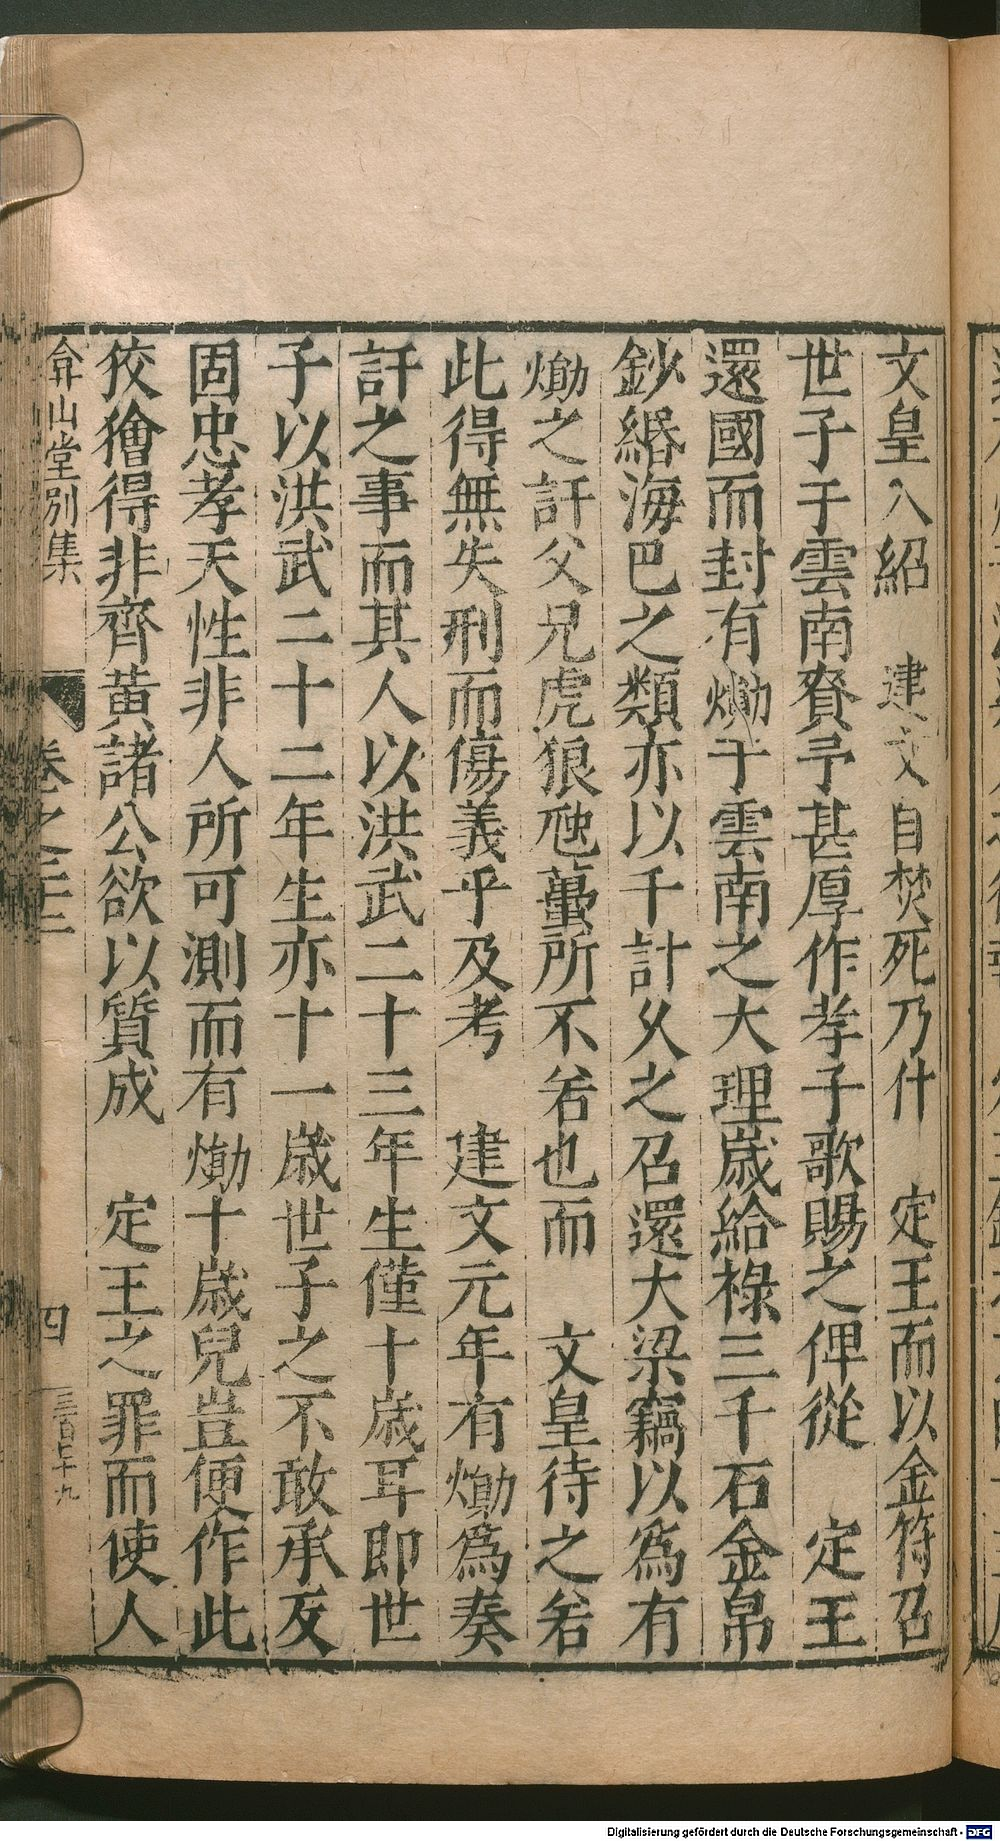 文皇入紹　建文自焚死乃什　定王而以金符召
世子于雲南賚予甚厚作孝子歌賜之俾從　定王
還國而封有爋于雲南之大理歲給祿三千石金帛
鈔緡海巴之類亦以千計久之召還大梁竊以爲有
爋之訐父兄虎狼虺蠆所不若也而　文皇待之若
此得無失刑而傷義乎及考　建文元年有爋爲奏
訐之事而其人以洪武二十三年生僅十歲耳即世
子以洪武二十二年生亦十一歲世子之不敢承反
固忠孝天性非人所可測而有爋十歲兒豈便作此
狡獪得非齊黃諸公欲以質成　定王之罪而使人
弇山堂別集　卷之三十二　四　三百七十九
Digitalisierung gefördert durch die Deutsche Forschungsgemeinschaft - DFG